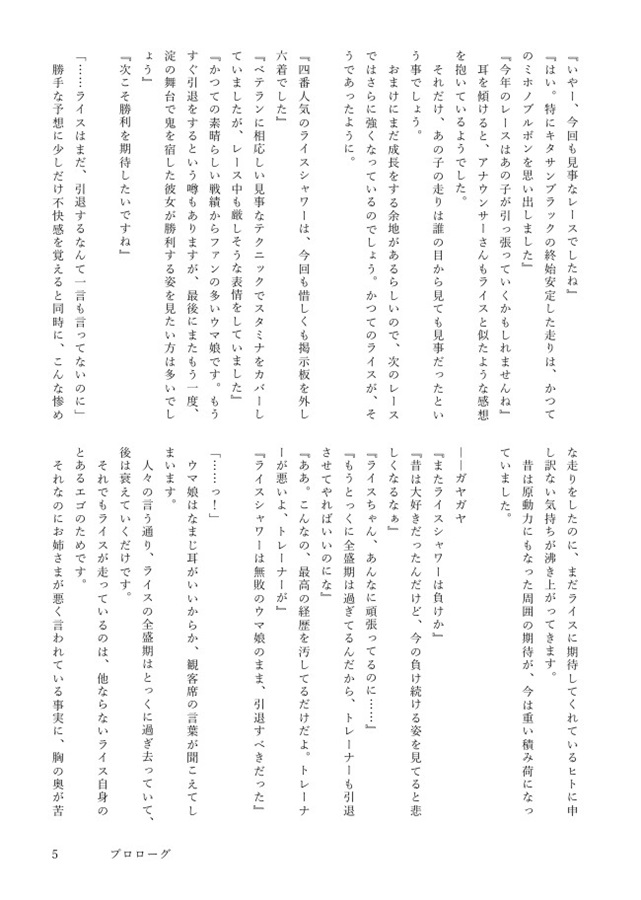 『いやー、今回も見事なレースでしたね』
『はい。特にキタサンブラックの終始安定した走りは、かつて
のミホノブルボンを思い出しました』
『今年のレースはあの子が引っ張っていくかもしれませんね』
耳を傾けると、アナウンサーさんもライスと似たような感想
を抱いているようでした。
それだけ、あの子の走りは誰の目から見ても見事だったとい
う事でしょう。
おまけにまだ成長をする余地があるらしいので、次のレース
ではさらに強くなっているのでしょう。かつてのライスが、そ
うであったように。
『四番人気のライスシャワーは、今回も惜しくも掲示板を外し
六着でした』
『ベテランに相応しい見事なテクニックでスタミナをカバーし
ていましたが、レース中も厳しそうな表情をしていました』
『かつての素晴らしい戦績からファンの多いウマ娘です。もう
すぐ引退をするという噂もありますが、最後にまたもう一度、
淀の舞台で鬼を宿した彼女が勝利する姿を見たい方は多いでし
ょう』
『次こそ勝利を期待したいですね』
「……ライスはまだ、引退するなんて一言も言ってないのに」
勝手な予想に少しだけ不快感を覚えると同時に、こんな惨め
な走りをしたのに、まだライスに期待してくれているヒトに申
し訳ない気持ちが沸き上がってきます。
昔は原動力にもなった周囲の期待が、今は重い積み荷になっ
ていました。
――ガヤガヤ
『またライスシャワーは負けか』
『昔は大好きだったんだけど、今の負け続ける姿を見てると悲
しくなるなぁ』
『ライスちゃん、あんなに頑張ってるのに……』
『もうとっくに全盛期は過ぎてるんだから、トレーナーも引退
させてやればいいのにな』
『ああ。こんなの、最高の経歴を汚してるだけだよ。トレーナ
ーが悪いよ、トレーナーが』
『ライスシャワーは無敗のウマ娘のまま、引退すべきだった』
「……っ！」
ウマ娘はなまじ耳がいいからか、観客席の言葉が聞こえてし
まいます。
人々の言う通り、ライスの全盛期はとっくに過ぎ去っていて、
後は衰えていくだけです。
それでもライスが走っているのは、他ならないライス自身の
とあるエゴのためです。
それなのにお姉さまが悪く言われている事実に、胸の奥が苦
5 プロローグ